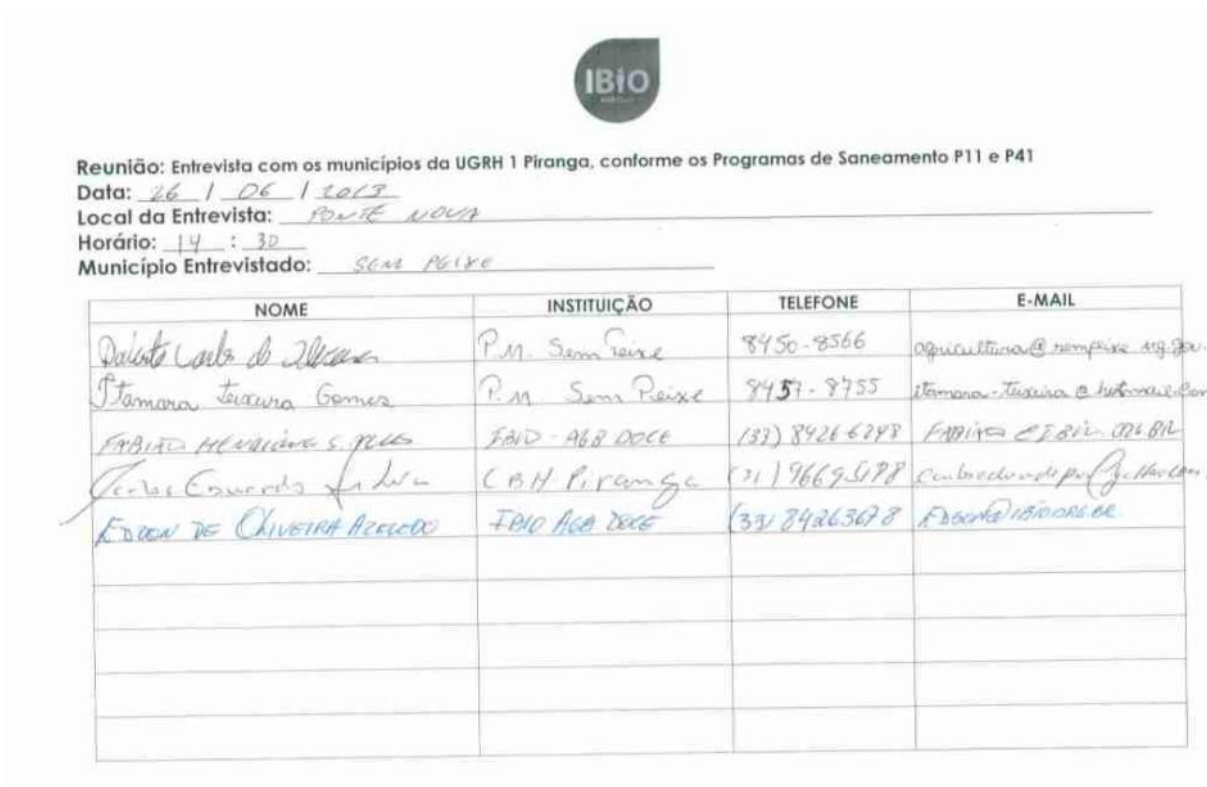 IBIO
Reunião: Entrevista com os municípios da UGRH 1 Piranga, conforme os Programas de Saneamento P11 e P41
Data: 26 / 06 / 2013
Local da Entrevista: PONTE NOVA
Horário: 14 : 30
Município Entrevistado: SEM PEIXE
NOME INSTITUIÇÃO TELEFONE E-MAIL
Carlos de P.M. Sem Peixe 8450-8566 agricultura@sempeixe.mg.gov.
Itamara Teixeira Gomes P.M Sem Peixe 8457-8755 itamara-teixeira@hotmail.com
FABIANO HENRIQUE S. IBIO - AGB DOCE (33) 8426 6248
Carlos Eduardo CBH Piranga (31)
EDSON DE OLIVEIRA AZEVEDO IBIO AGB DOCE (33) 84263678 EDSON@IBIO.ORG.BR